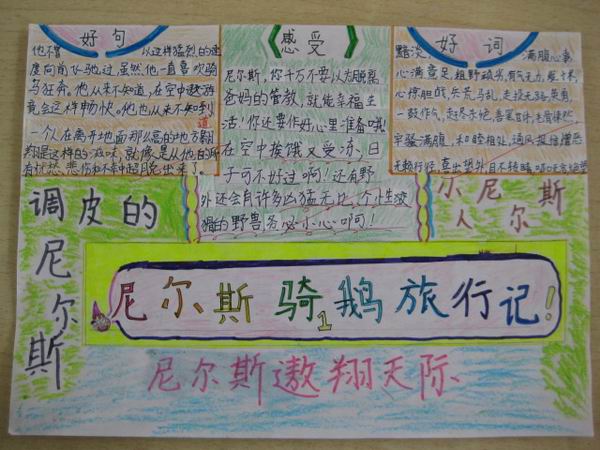 好句
他不曾 以这样猛烈的速
度向前飞驰过,虽然他一直喜欢骑
马狂奔。他从来不知道,在空中遨游
竟会这样畅快。他也从来不知道
一个人在离开地面那么高的地方翱
翔是这样的滋味,就像是从他的所
有忧愁、悲伤和不幸中超脱出来了。
感受
尼尔斯,你千万不要认为脱离
爸妈的管教,就能幸福生
活!你还要作好心里准备哦!
在空中挨饿又受冻,日
子可不好过啊!还有野
外还会有许多凶猛无比、个个生
猾的野兽务必小心啊!
好词
黯淡 满腹心事
心满意足、粗野顽劣、有气无力、
心惊胆战、兵荒马乱、走投无路、英勇、
一鼓作气、赶尽杀绝、
牢骚满腹、和睦相处、通风报信、憎恶
无赖行径、喜出望外、目不转睛
调皮的
尼尔斯
小尼尔斯
人尔斯
尼尔斯骑鹅旅行记!
1
尼尔斯遨翔天际